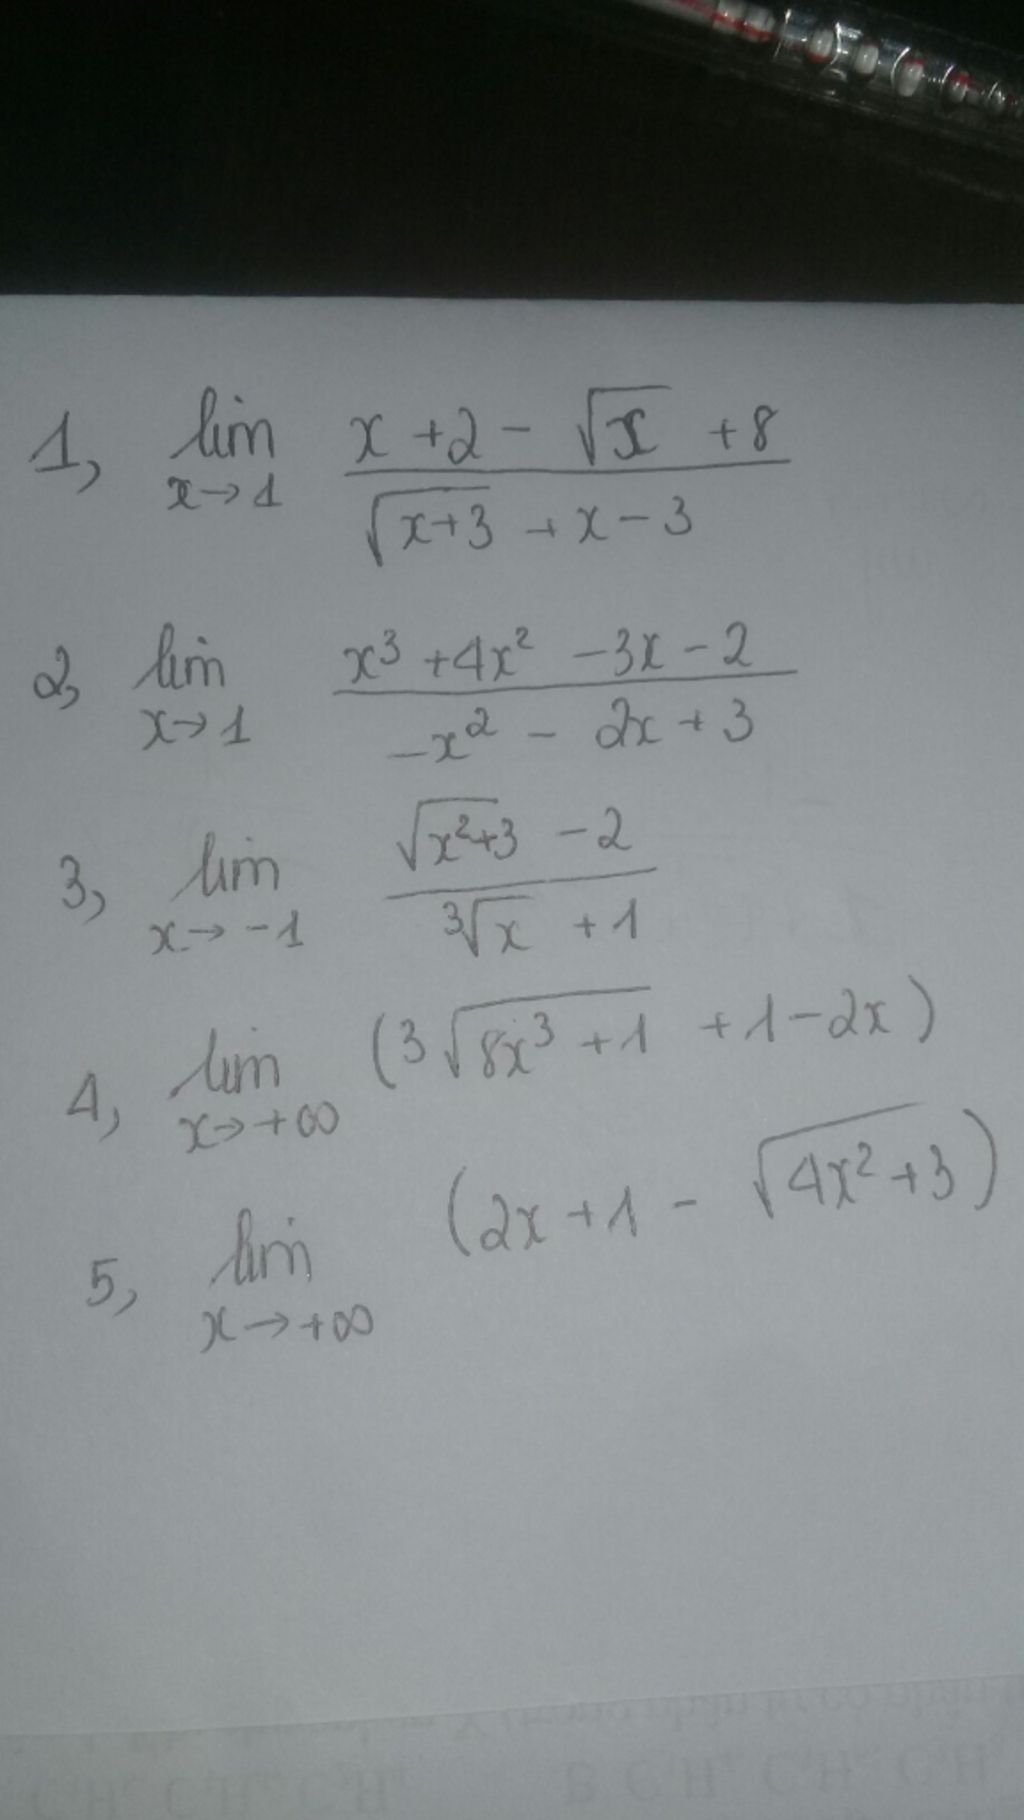 1, lim x→1 (x + 2 - √x + 8) / (√(x+3) + x - 3)
2, lim x→1 (x³ + 4x² - 3x - 2) / (-x² - 2x + 3)
3, lim x→-1 (√(x²+3) - 2) / (³√x + 1)
4, lim x→+∞ (³√(8x³ + 1) + 1 - 2x)
5, lim x→+∞ (2x + 1 - √(4x² + 3))